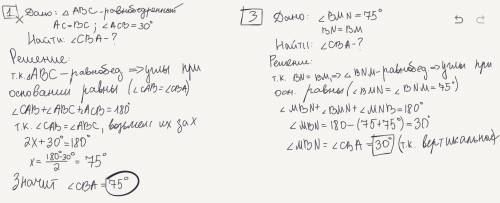 1 Дано: △ABC - равнобедренный
AC=BC; ∠ACB=30°
Найти: ∠CBA-?
Решение:
т.к. △ABC - равнобед ⇒ углы при
основании равны (∠CAB=∠CBA)
∠CAB+∠ABC+∠ACB=180°
Т.к. ∠CAB=∠ABC, возьмём их за x
2x+30°=180°
x = (180°-30°)/2 = 75°
Значит ∠CBA=75°
3 Дано: ∠BMN=75°
BN=BM
Найти: ∠CBA-?
Решение:
т.к. BN=BM, ⇒ ∠BNM - равнобед ⇒ углы при
осн. равны (∠BMN=∠BNM=75°)
∠MBN+∠BMN+∠MNB=180°
∠MBN=180-(75+75°)=30°
∠MBN=∠CBA=30° (т.к. вертикальные)